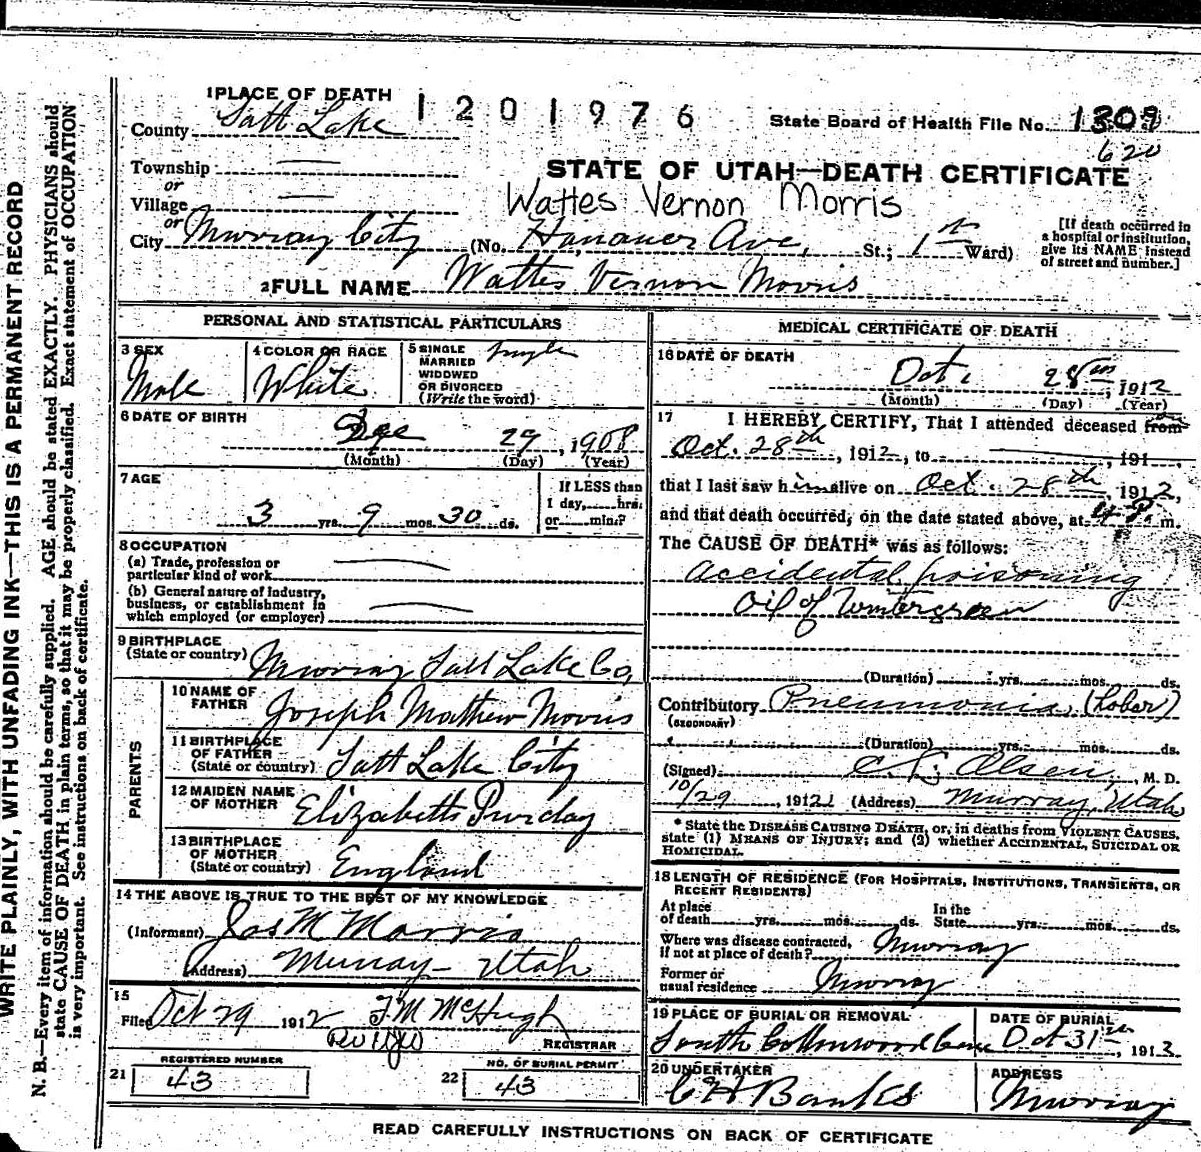 WRITE PLAINLY, WITH UNFADING INK—THIS IS A PERMANENT RECORD
N. B.—Every item of information should be carefully supplied. AGE should be stated EXACTLY. PHYSICIANS should
state CAUSE OF DEATH in plain terms, so that it may be properly classified. Exact statement of OCCUPATION
is very important. See instructions on back of certificate.
1 PLACE OF DEATH 1201976
County Salt Lake
State Board of Health File No. 1309
620
Township —
or
Village —
or
STATE OF UTAH—DEATH CERTIFICATE
Wattes Vernon Morris
City Murray City (No. Hanauer Ave, St.; 1st Ward)
[If death occurred in
a hospital or institution,
give its NAME instead
of street and number.]
2 FULL NAME Wattes Vernon Morris
PERSONAL AND STATISTICAL PARTICULARS
3 SEX
Male
4 COLOR OR RACE
White
5 SINGLE
MARRIED
WIDOWED
OR DIVORCED
(Write the word)
Single
6 DATE OF BIRTH
29, 1908
(Month) (Day) (Year)
7 AGE
3 yrs. 9 mos. 30 ds.
If LESS than
1 day,......hrs.
or......min.?
8 OCCUPATION
(a) Trade, profession or
particular kind of work —
(b) General nature of industry,
business, or establishment in
which employed (or employer) —
9 BIRTHPLACE
(State or country) Murray Salt Lake Co,
PARENTS
10 NAME OF
FATHER Joseph Mathew Morris
11 BIRTHPLACE
OF FATHER
(State or country) Salt Lake City
12 MAIDEN NAME
OF MOTHER Elizabeth Purday
13 BIRTHPLACE
OF MOTHER
(State or country) England
14 THE ABOVE IS TRUE TO THE BEST OF MY KNOWLEDGE
(Informant) Jos M Morris
(Address) Murray – Utah
15
Filed Oct 29 1912 F.M. McHugh
REGISTRAR
REGISTERED NUMBER
21 43
NO. OF BURIAL PERMIT
22 43
MEDICAL CERTIFICATE OF DEATH
16 DATE OF DEATH
Oct. 28th, 1912
(Month) (Day) (Year)
17 I HEREBY CERTIFY, That I attended deceased from
Oct. 28th, 1912, to —, 191
that I last saw him alive on Oct. 28th, 1912,
and that death occurred, on the date stated above, at 4 P. m.
The CAUSE OF DEATH* was as follows:
Accidental poisoning
Oil of Wintergreen
(Duration) yrs. mos. ds.
Contributory Pneumonia, (Lobar)
(SECONDARY)
(Duration) yrs. mos. ds.
(Signed) Olsen, M. D.
10/29, 1912 (Address) Murray, Utah
* State the DISEASE CAUSING DEATH, or, in deaths from VIOLENT CAUSES,
state (1) MEANS OF INJURY; and (2) whether ACCIDENTAL, SUICIDAL OR
HOMICIDAL.
18 LENGTH OF RESIDENCE (FOR HOSPITALS, INSTITUTIONS, TRANSIENTS, OR
RECENT RESIDENTS)
At place
of death......yrs......mos......ds.
In the
State......yrs......mos......ds.
Where was disease contracted,
if not at place of death? Murray
Former or
usual residence Murray
19 PLACE OF BURIAL OR REMOVAL
South Cottonwood Cem
DATE OF BURIAL
Oct 31st, 1912
20 UNDERTAKER
C H Banks
ADDRESS
Murray
READ CAREFULLY INSTRUCTIONS ON BACK OF CERTIFICATE